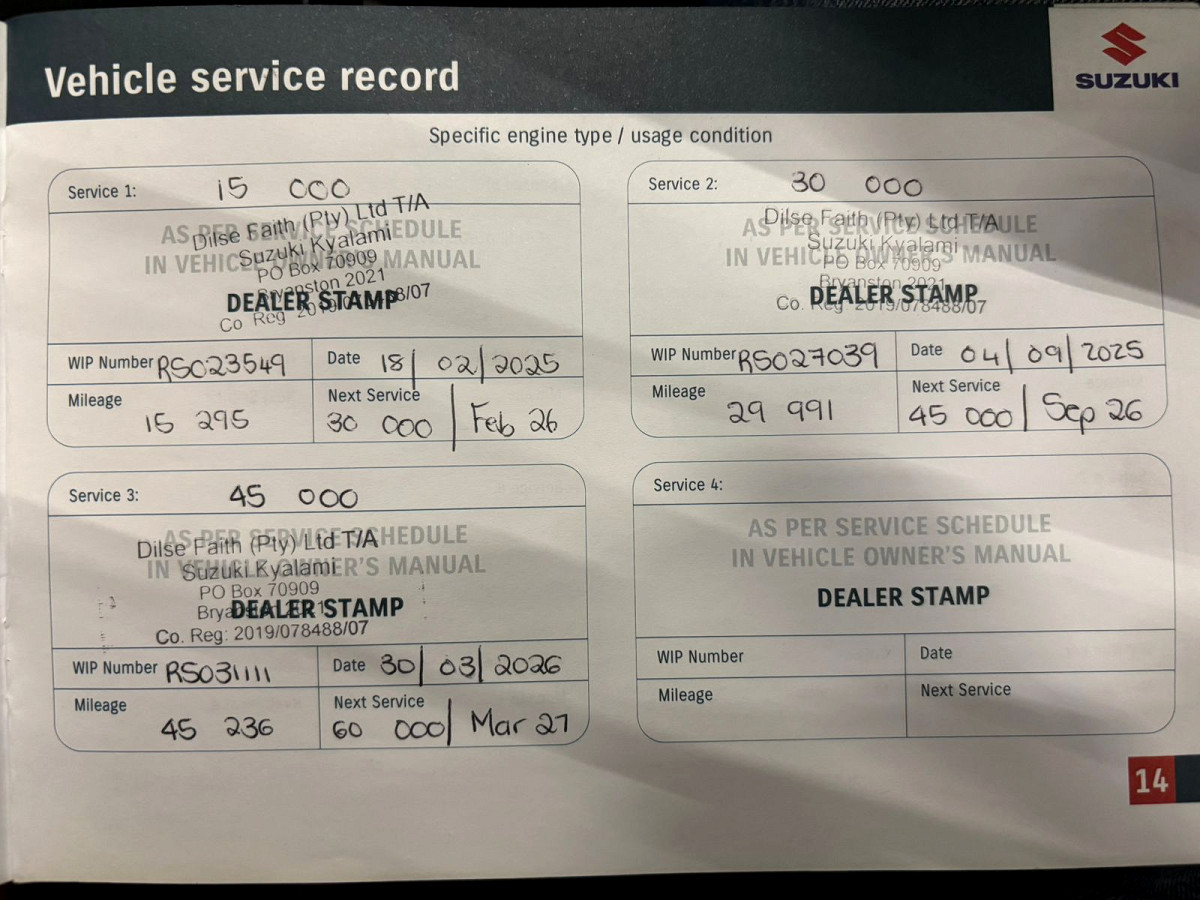 Vehicle service record
SUZUKI
Specific engine type / usage condition
Service 1: 15 000
AS PER SERVICE SCHEDULE
IN VEHICLE OWNER'S MANUAL
Dilse Faith (Pty) Ltd T/A
Suzuki Kyalami
PO Box 70909
Bryanston 2021
DEALER STAMP
Co Reg 2019/078488/07
WIP Number RS023549
Date 18/02/2025
Mileage 15 295
Next Service 30 000 / Feb 26
Service 2: 30 000
AS PER SERVICE SCHEDULE
IN VEHICLE OWNER'S MANUAL
Dilse Faith (Pty) Ltd T/A
Suzuki Kyalami
PO Box 70909
Bryanston 2021
DEALER STAMP
Co. Reg 2019/078488/07
WIP Number RS027039
Date 04/09/2025
Mileage 29 991
Next Service 45 000 / Sep 26
Service 3: 45 000
AS PER SERVICE SCHEDULE
IN VEHICLE OWNER'S MANUAL
Dilse Faith (Pty) Ltd T/A
Suzuki Kyalami
PO Box 70909
Bryanston 2021
DEALER STAMP
Co. Reg: 2019/078488/07
WIP Number RS031111
Date 30/03/2026
Mileage 45 236
Next Service 60 000 / Mar 27
Service 4:
AS PER SERVICE SCHEDULE
IN VEHICLE OWNER'S MANUAL
DEALER STAMP
WIP Number
Date
Mileage
Next Service
14